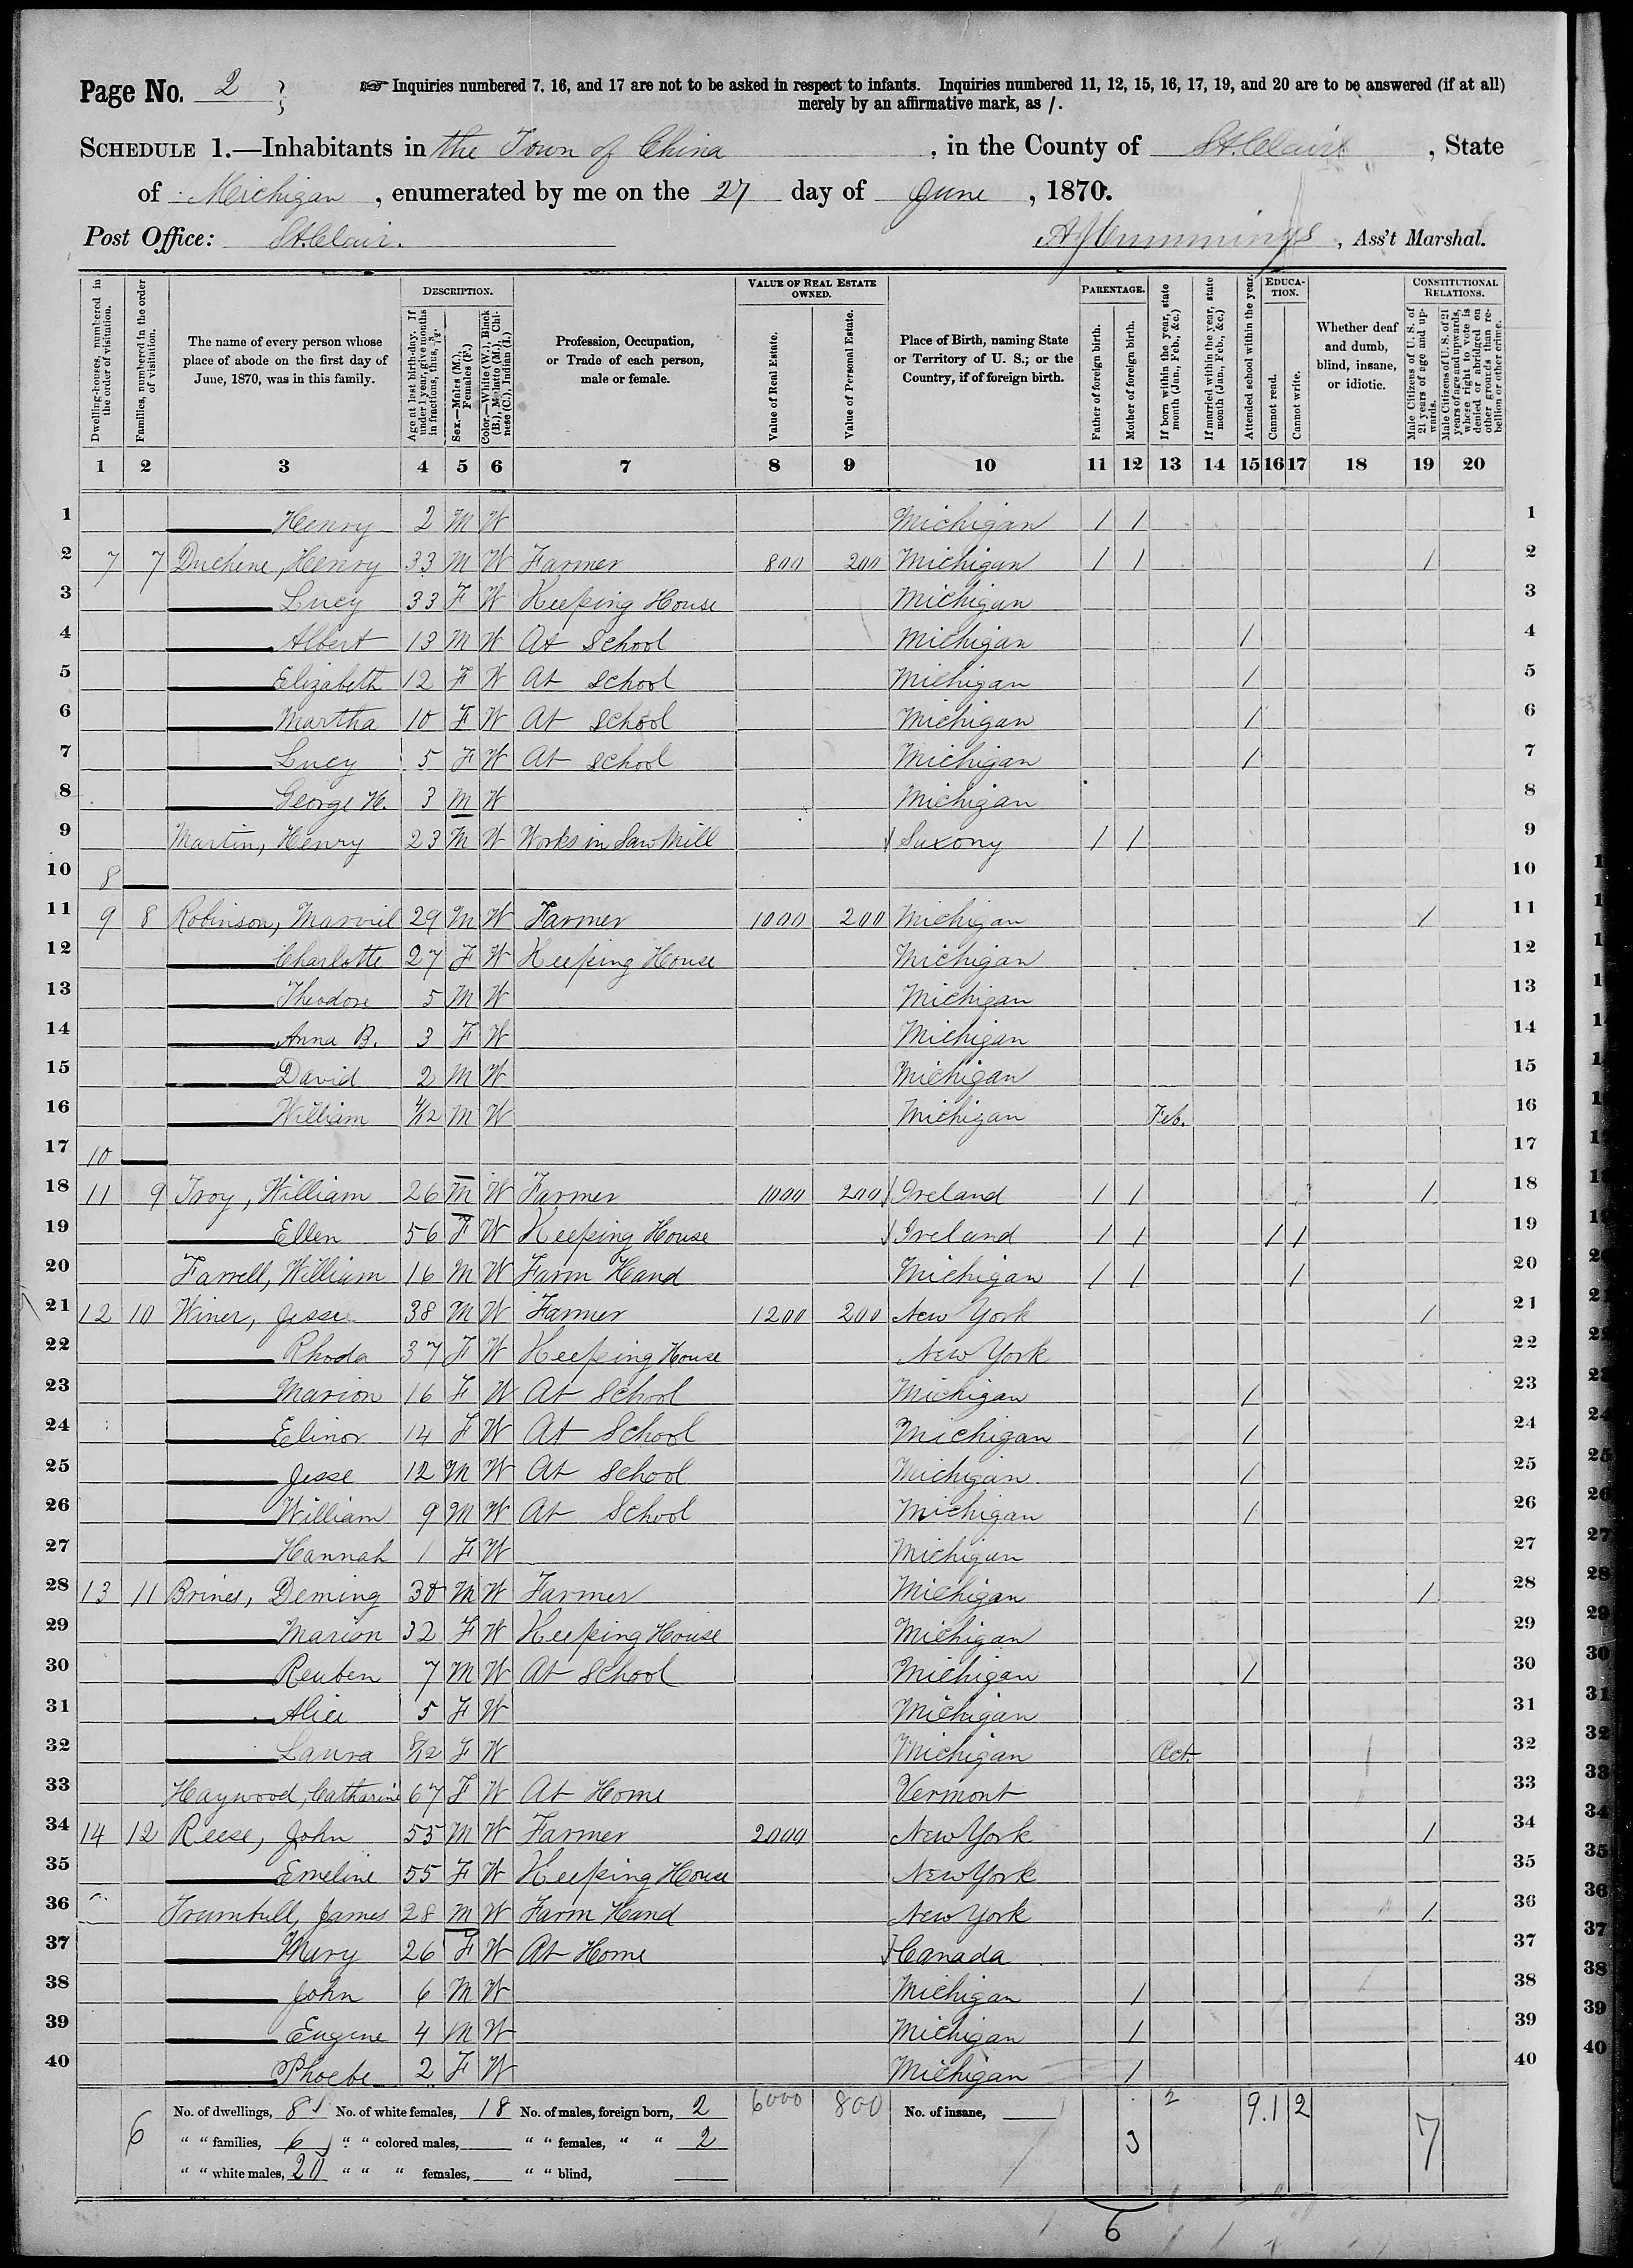 Page No. 2
☞ Inquiries numbered 7, 16, and 17 are not to be asked in respect to infants. Inquiries numbered 11, 12, 15, 16, 17, 19, and 20 are to be answered (if at all)
merely by an affirmative mark, as /.
SCHEDULE 1.—Inhabitants in the Town of China, in the County of St. Clair, State
of Michigan, enumerated by me on the 27 day of June, 1870.
Post Office: St. Clair. A J Cummings, Ass't Marshal.
DESCRIPTION. VALUE OF REAL ESTATE OWNED. PARENTAGE. EDUCATION. CONSTITUTIONAL RELATIONS.
Dwelling-houses, numbered in the order of visitation.
Families, numbered in the order of visitation.
The name of every person whose place of abode on the first day of June, 1870, was in this family.
Age at last birth-day. If under 1 year, give months in fractions, thus, 3/12.
Sex.—Males (M.), Females (F.)
Color.—White (W.), Black (B.), Mulatto (M.), Chinese (C.), Indian (I.)
Profession, Occupation, or Trade of each person, male or female.
Value of Real Estate.
Value of Personal Estate.
Place of Birth, naming State or Territory of U. S.; or the Country, if of foreign birth.
Father of foreign birth.
Mother of foreign birth.
If born within the year, state month (Jan., Feb., &c.)
If married within the year, state month (Jan., Feb., &c.)
Attended school within the year.
Cannot read.
Cannot write.
Whether deaf and dumb, blind, insane, or idiotic.
Male Citizens of U. S. of 21 years of age and upwards.
Male Citizens of U. S. of 21 years of age and upwards, whose right to vote is denied or abridged on other grounds than rebellion or other crime.
1 2 3 4 5 6 7 8 9 10 11 12 13 14 15 16 17 18 19 20
1 Henry 2 M W Michigan / / 1
2 7 7 Duchene, Henry 33 M W Farmer 800 200 Michigan / / / 2
3 Lucy 33 F W Keeping House Michigan 3
4 Albert 13 M W At School Michigan / 4
5 Elizabeth 12 F W At School Michigan / 5
6 Martha 10 F W At School Michigan / 6
7 Lucy 5 F W At School Michigan / 7
8 George H. 3 M W Michigan 8
9 Martin, Henry 23 M W Works in Saw Mill Saxony / / 9
10 8 — 10
11 9 8 Robinson, Marviel 29 M W Farmer 1000 200 Michigan / 11
12 Charlotte 27 F W Keeping House Michigan 12
13 Theodore 5 M W Michigan 13
14 Anna B. 3 F W Michigan 14
15 David 2 M W Michigan 15
16 William 4/12 M W Michigan Feb. 16
17 10 — 17
18 11 9 Troy, William 26 M W Farmer 1000 200 Ireland / / / 18
19 Ellen 56 F W Keeping House Ireland / / / / 19
20 Farrell, William 16 M W Farm Hand Michigan / / / 20
21 12 10 Winer, Jesse 38 M W Farmer 1200 200 New York / 21
22 Rhoda 37 F W Keeping House New York 22
23 Marion 16 F W At School Michigan / 23
24 Elinor 14 F W At School Michigan / 24
25 Jesse 12 M W At School Michigan / 25
26 William 9 M W At School Michigan / 26
27 Hannah 1 F W Michigan 27
28 13 11 Brines, Deming 30 M W Farmer Michigan / 28
29 Marion 32 F W Keeping House Michigan 29
30 Reuben 7 M W At School Michigan / 30
31 Alice 5 F W Michigan 31
32 Laura 8/12 F W Michigan Oct. 32
33 Haywood, Catharine 67 F W At Home Vermont 33
34 14 12 Reese, John 55 M W Farmer 2000 New York / 34
35 Emeline 55 F W Keeping House New York 35
36 Trumbull, James 28 M W Farm Hand New York / 36
37 Mary 26 F W At Home Canada 37
38 John 6 M W Michigan / 38
39 Eugene 4 M W Michigan / 39
40 Phoebe 2 F W Michigan / 40
No. of dwellings, 8 No. of white females, 18 No. of males, foreign born, 2 6000 800 No. of insane, 2 9 1 2
6 " " families, 6 " " colored males, " " females, " " 2 3 7
" " white males, 20 " " " females, " " blind,
6